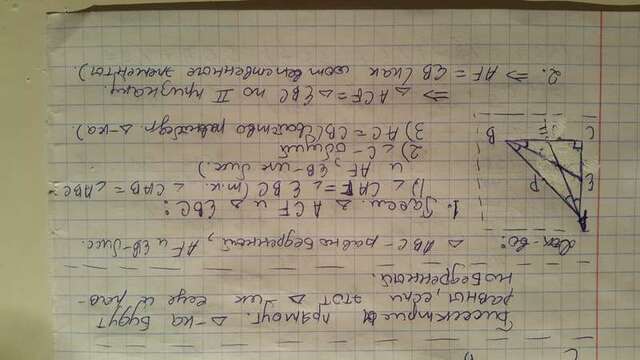 Биссектрисы прямоуг. Δ-ка будут
равны, если этот Δ-ик еще и рав-
нобедренный.
Док-во:
Δ ABC - равнобедренный, AF и EB - бисс.
1. Рассм. Δ ACF и Δ EBC:
1) ∠CAF = ∠EBC (т.к. ∠CAB = ∠ABC
и AF, EB - их бисс.)
2) ∠C - общий
3) AC = CB (свойство равнобедр. Δ-ка)
⇒ Δ ACF = Δ EBC по II признаку.
2. ⇒ AF = EB (как соответственные элементы).
A
E
P
C
F
B